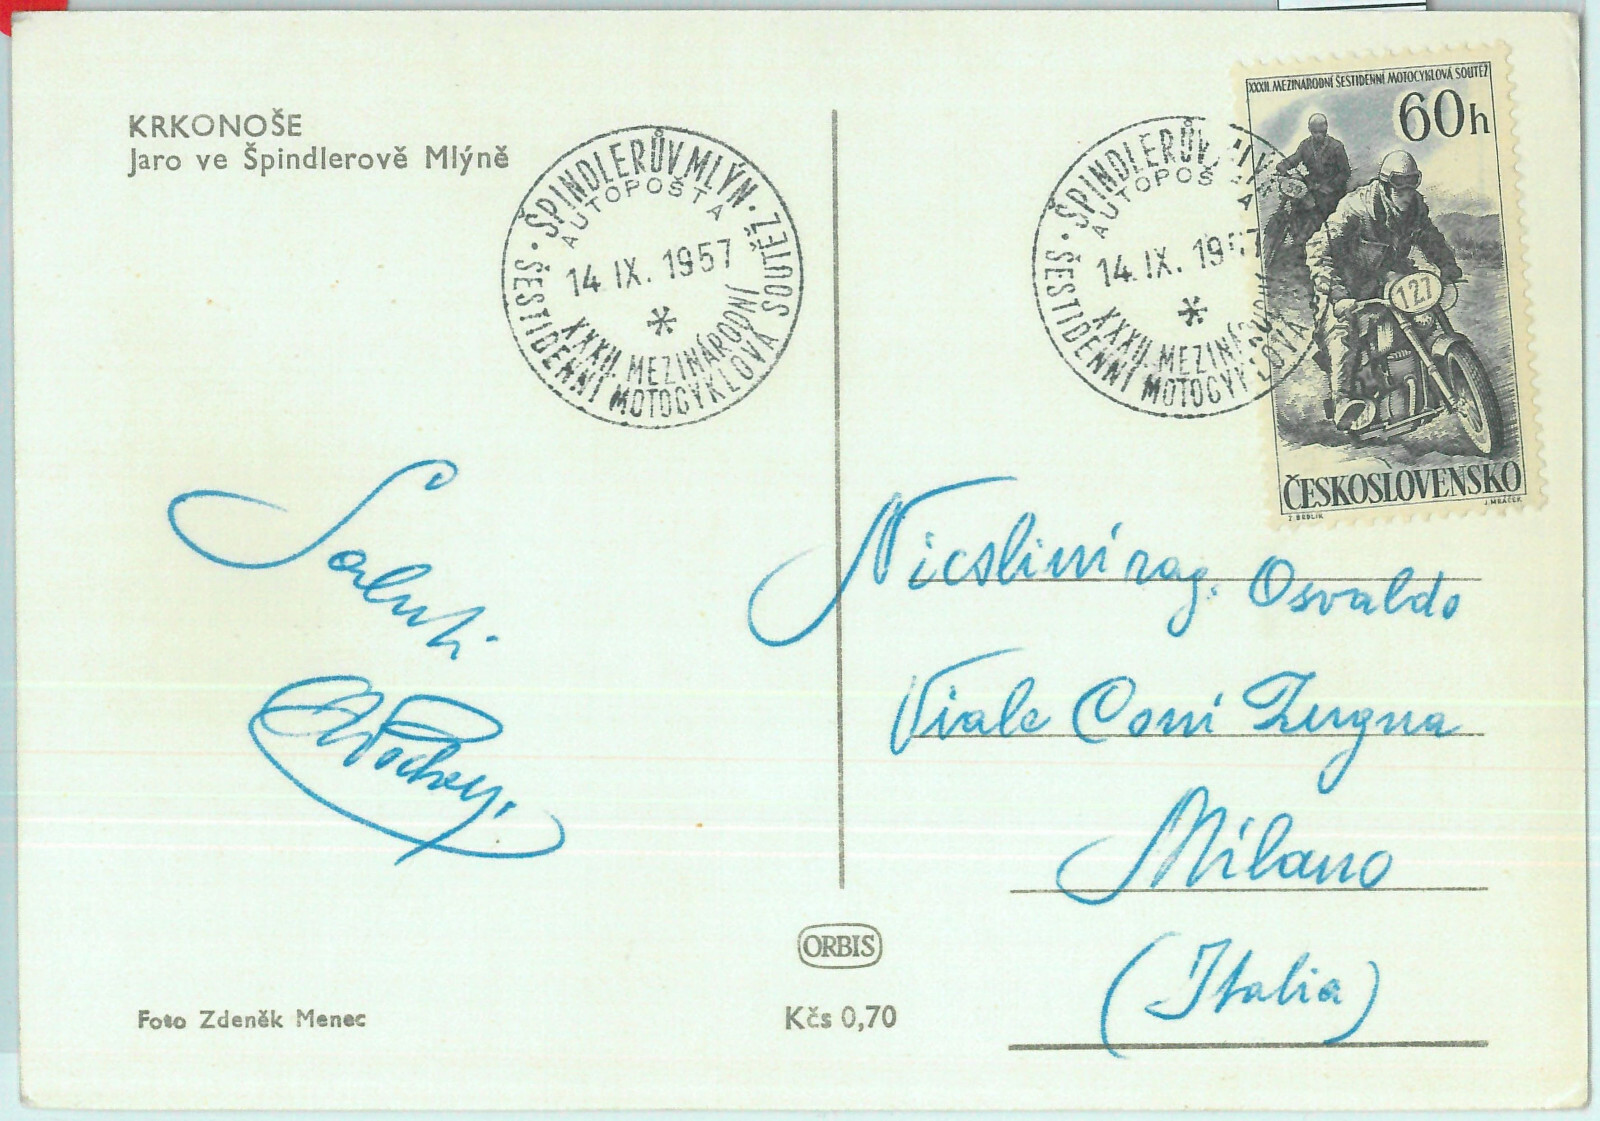 KRKONOŠE
Jaro ve Špindlerově Mlýně
ŠPINDLERŮV MLÝN
AUTOPOŠTA
14. IX. 1957
XXXII. MEZINÁRODNÍ
ŠESTIDENNÍ MOTOCYKLOVÁ SOUTĚŽ
ŠPINDLERŮV
AUTOPOŠTA
14. IX. 1957
XXXII. MEZINÁRODNÍ
ŠESTIDENNÍ MOTOCYKLOVÁ
XXXII. MEZINÁRODNÍ ŠESTIDENNÍ MOTOCYKLOVÁ SOUTĚŽ
60h
127
ČESKOSLOVENSKO
J. MRÁČEK
Saluti
rag. Osvaldo
Viale Coni Zugna
Milano
(Italia)
ORBIS
Kčs 0,70
Foto Zdeněk Menec